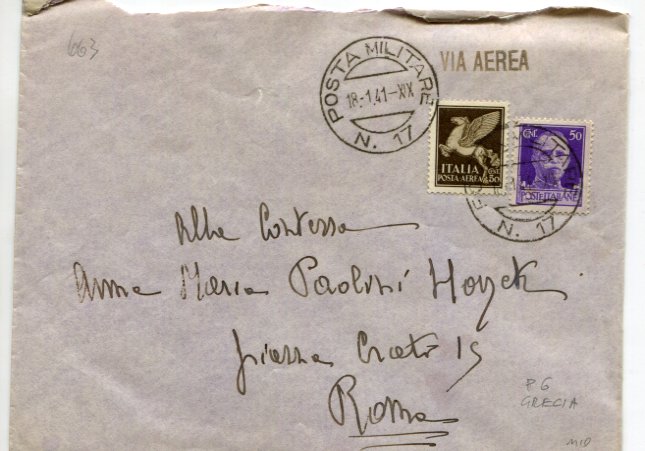 663
POSTA MILITARE
18-1.41-XX
N. 17
VIA AEREA
ITALIA
POSTA AEREA
CENT. 50
CENT. 50
POSTE ITALIANE
N. 17
Alla Contessa
Anna Maria Paolini Hoyek
piazza Crati 15
Roma
P 6
GRECIA